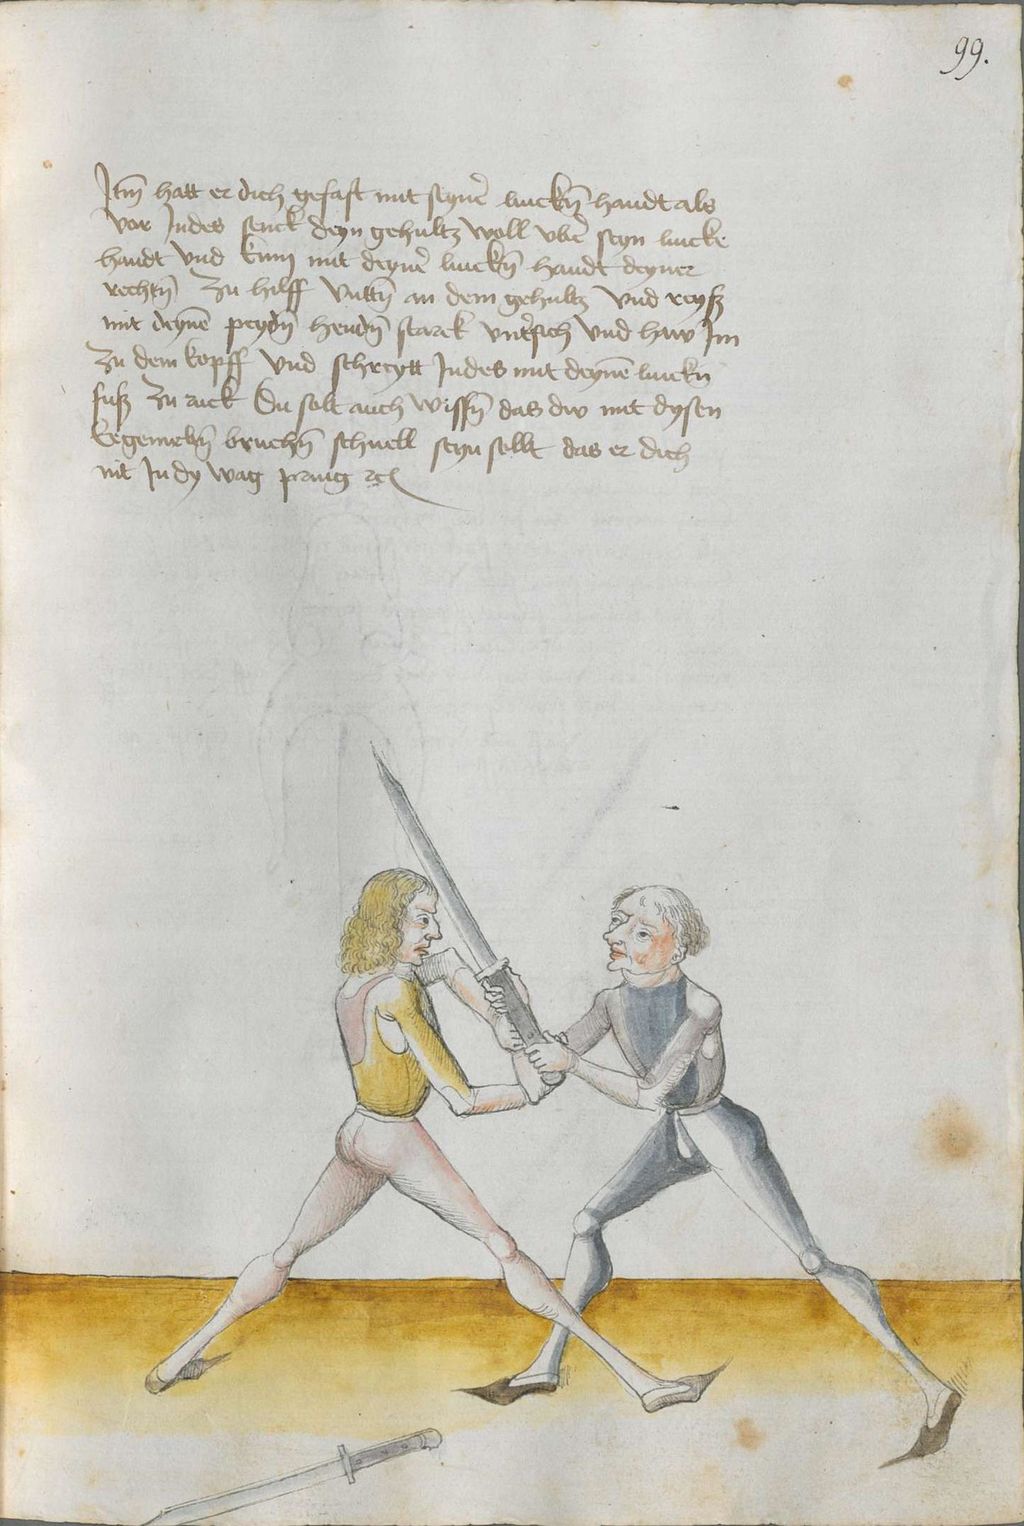 99.
Jtm̄ hatt er dich gefast mit seyner̄ linckn̄ handt als
vor Jndes senck deyn gehultz woll vber̄ seyn lincke
handt vnd kum̄ mit deyner̄ linckn̄ handt deyner
rechtn̄ zu hilff vnttn̄ an dem gehultz vnd reyß
mit deynē peydn̄ hendn̄ starck vnt̄sich vnd haw Jm
zu dem kopff vnd schreytt Jndes mit deynē linckn
fuß zu ruck Du solt auch wissn̄ das dw mit dysen
bruchn̄ schnell seyn sollt das er dich
nit Jn dy wag pring